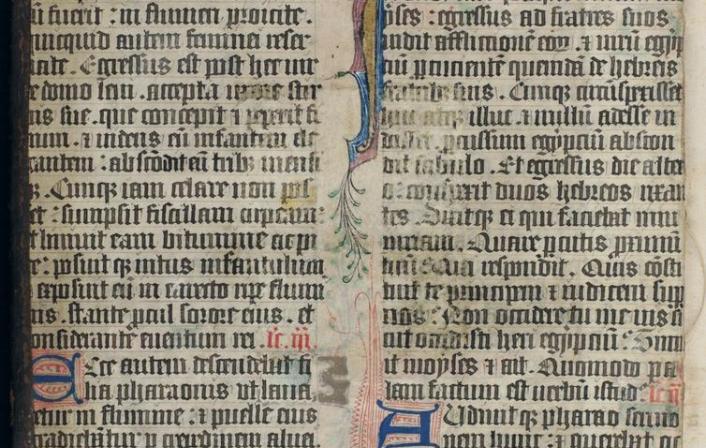 ū fuerit : in flumen proicite .
quicquid autem feminei reser
uate . Egressus est post hec uir
e domo leui . accepta uxore stir
pis sue . que concepit ⁊ peperit fi
lium . ⁊ uidens eū infantem ele
gantem : abscōdit eū tribꝫ mensi
bꝫ . Cumqꝫ iam celare non pos
set : sumpsit fiscellam scirpeam :
et liniuit eam bitumine ac pi
ce : posuit qꝫ intus infantulum
exposuit eū in carecto ripe flumi
nis . stante ꝓcul sorore eius . et
considerante euentum rei . ic . iii .
Ecce autem descendebat fi
lia pharaonis ut laua
retur in flumine : ⁊ puelle eius
gradiebātur ꝑ crepidinem aluei .
ises : egressus ad fratres suos .
uidit afflictionē eoꝝ . ⁊ uirū egip
tiū ꝑcucientē quendā de hebreis
fratribꝫ suis . Cumqꝫ circūspexisset
huc atqꝫ illuc . ⁊ nullū adesse ui
disset . ꝑcussum egipciū abscon
dit sabulo . Et egressus die alter
o : conspexit duos hebreos rixan
tes . Dixitqꝫ ei qui faciebat iniu
riam . Quare ꝑcutis ꝓximū
tuū ? Qui respondit . Quis cōsti
tuit te principem ⁊ iudicem sup
nos ? Non occidere tu me uis s
icut occidisti heri egipciū ? Timu
it moyses ⁊ ait . Quomodo pa
lam factum est uerbū istud ? ic ii
Audiuit qꝫ pharao sermo
nem hunc : ⁊ querebat oc